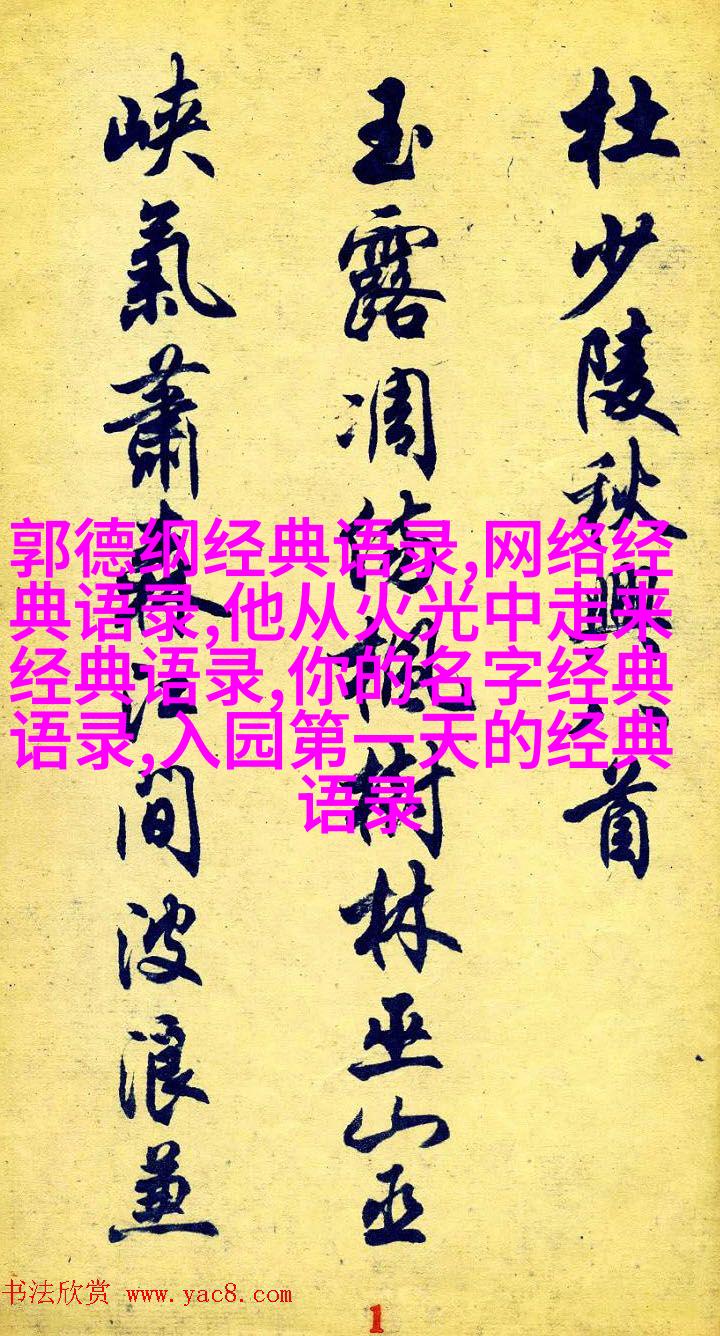 杜少陵秋興八首
玉露凋傷楓樹林巫山巫
峽氣蕭森江間波浪兼
郭德纲经典语录,网络经
典语录,他从火光中走来
经典语录,你的名字经典
语录,入园第一天的经典
语录
书法欣赏 www.yac8.com
1